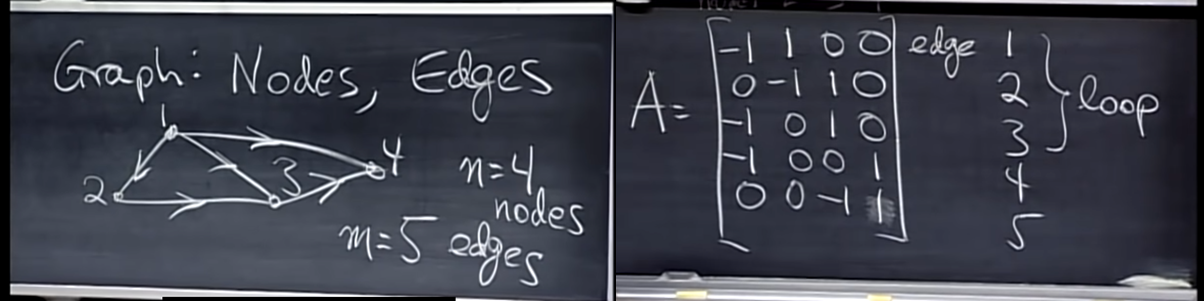 Graph: Nodes, Edges
1
2
3
4
n=4
nodes
m=5 edges
A=
-1 1 0 0 edge 1
0 -1 1 0 2
-1 0 1 0 3
loop
-1 0 0 1 4
0 0 -1 1 5